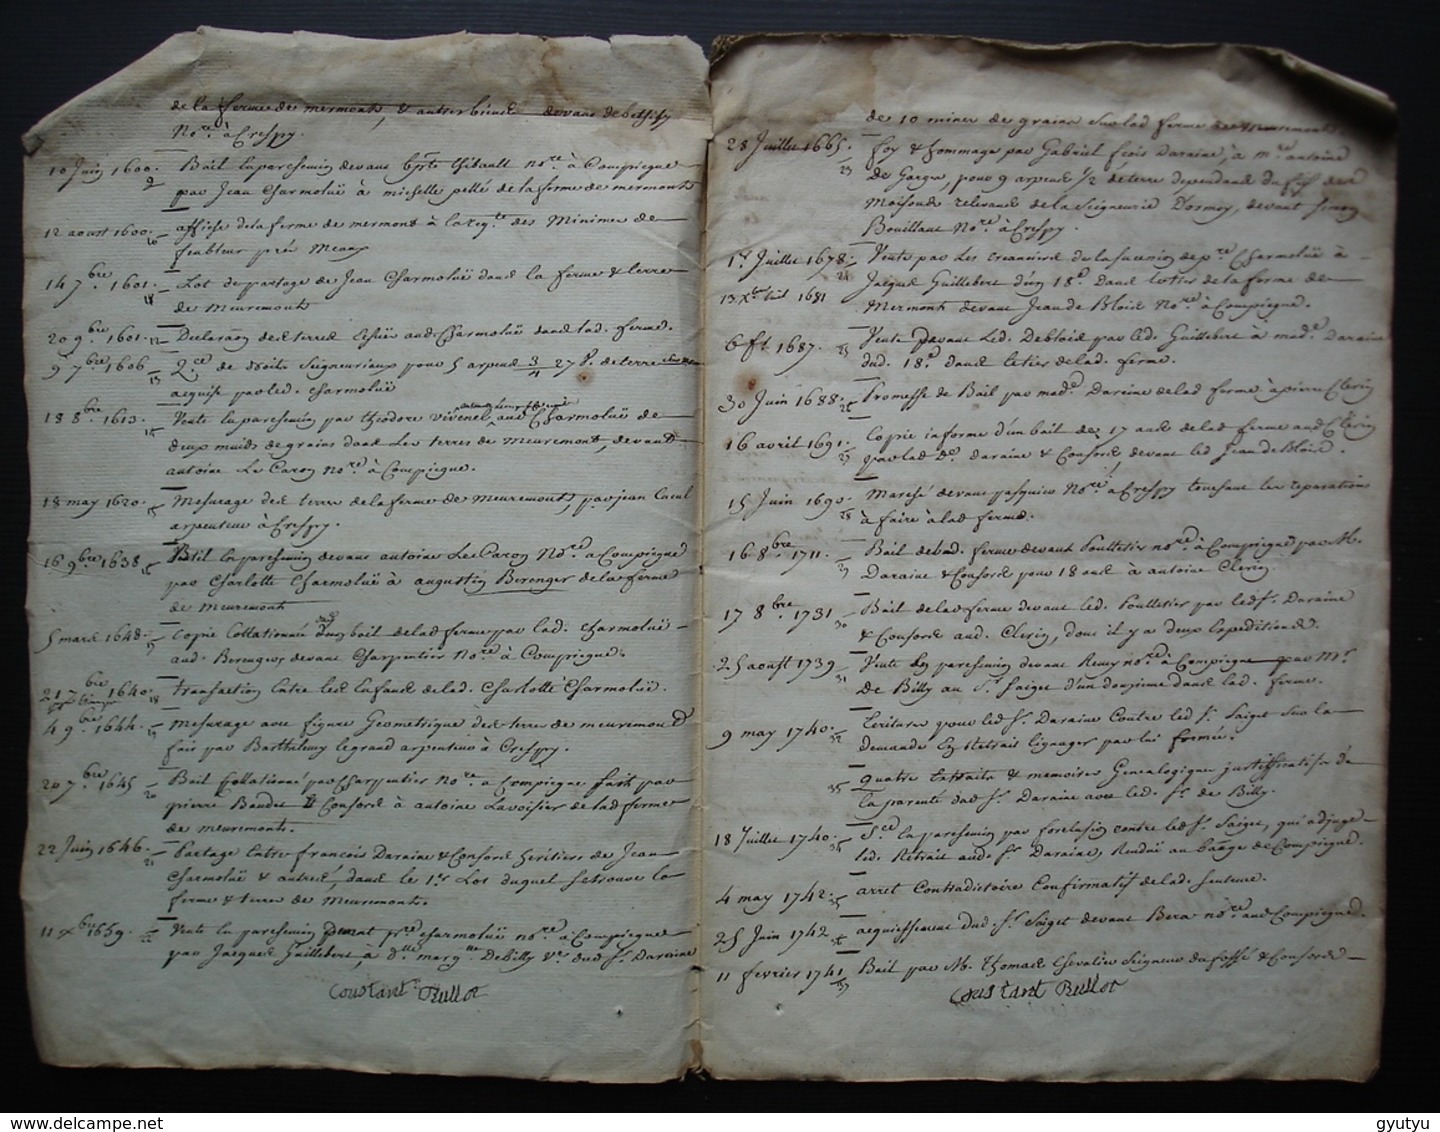 de la ferme de mermont, & autres biens devant de
No.re à Crespy.
10 Juin 1600. Bail en parchemin devant Thibault no.re à Compiegne
9 par Jean Charmoluë à michelle pellé de la ferme de mermont
12 aoust 1600. affiche de la ferme de mermont à la req.te des Minimes de
10 près Meaux
14 7.bre 1601. Lot de partage de Jean Charmoluë dans la ferme & terres
de meuremont
20 9.bre 1601. 12 Declaraon des terres aud. Charmoluë dans lad. ferme.
9 7.bre 1606 Q.ce de droits seigneuriaux pour 5 arpens 3/4 27 p. de terre
13 acquise par led. Charmoluë
18 8.bre 1613. Vente en parchemin par theodore vivenel aud Charmoluë de
deux muids de grains dans les terres de meuremont, devant
antoine Le Caron No.re à Compiegne.
18 may 1620. Mesurage des terres de la ferme de meuremont, par jean
arpenteur à Crespy.
16 9.bre 1638 Bail en parchemin devant antoine Le Caron No.re à Compiegne
par Charlotte Charmoluë à augustin Berenger de la ferme
de meuremont
5 mars 1648. Copie Collationnée du bail de lad ferme par lad. Charmoluë
aud. Berenger devant Charpentier No.re à Compiegne.
21 7.bre 1640 18 transaction Entre les Enfans de lad. Charlotte Charmoluë.
4 9.bre 1644. 19 mesurage avec figure Geometrique des terres de meuremont
fait par Barthelemy legrand arpenteur à Crespy.
20 7.bre 1645 Bail Collationné par Charpentier No.re à Compiegne fait par
20 pierre Baudet & Consors à antoine Lavoisier de lad ferme
de meuremont.
22 Juin 1646. Partage Entre francois Daraine & Consors heritiers de Jean
21 Charmoluë & autres, dans le 1.er Lot duquel se trouve la
ferme & terres de Meuremont.
11 x.bre 1659. 22 Vente en parchemin devant p.re Charmoluë no.re à Compiegne
par Jacques Guillebert à d.lle marg.tte DeBilly V.e dud S.r Daraine
Constant Rullot
de 10 mines de grains sur lad ferme de meuremont
28 Juillet 1665. foy & hommage par Gabriel frois Daraine, à m.re antoine
23 de Gorgia, pour 9 arpens 1/2 de terre dependans du fief de
relevant de la Seigneurie Dormoy, devant Simon
Bouillant No.re à Crespy.
1.er Juillet 1678. Vente par Les Creanciers de la succession de p.re Charmoluë à
13 x.bre 1681 Jacques Guillebert d'un 18.e dans de la ferme de
Mermont devant Jean de Blois No.re à Compiegne.
6 f.r 1687. Vente devant Led. Deblois par led. Guillebert à mad.e Daraine
dud. 18.e dans de lad. ferme.
30 Juin 1688. Promesse de Bail par mad.e Daraine de lad ferme à pierre Clerin
16 avril 1691. Copie informe d'un bail de 17 ans de lad ferme aud Clerin
27 par lad D.e Daraine & Consors, devant led Jean de Blois.
15 Juin 1690. Marché devant pasquier No.re à Crespy touchant les reparations
28 à faire à lad ferme.
16 8.bre 1711. Bail de lad. ferme devant Poulletier no.re à Compiegne par M.
29 Daraine & Consors pour 18 ans à antoine Clerin.
17 8.bre 1731 Bail de lad ferme devant led. Poulletier par led s.r Daraine
30 & Consors aud. Clerin, dont il y a deux Expeditions.
25 aoust 1739 Vente En parchemin devant Remy no.re à Compiegne par M.r
31 De Billy au S.r Saiget d'un douzieme dans lad. ferme.
9 may 1740. Ecritures pour led s.r Daraine Contre led s.r Saiget sur la
32 demande En Retrait lignager par lui formée.
Quatre Extraits & memoires Genealogique justifficatifs de
la parenté dud s.r Daraine avec led. s.r de Billy.
18 Juillet 1740. S.ce En parchemin par forclusion contre led s.r Saiget, qui adjuge
led. Retrait aud. s.r Daraine, Rendue au bailliage de Compiegne.
4 may 1742. arret Contradictoire Confirmatif de lad. sentence.
25 Juin 1742 acquiessement dud s.r Saiget devant Bera no.re aud Compiegne.
11 fevrier 1741 37 Bail par M. Thomas Chevalier Seigneur du fossé & Consors
Constant Rullot
gyutyu